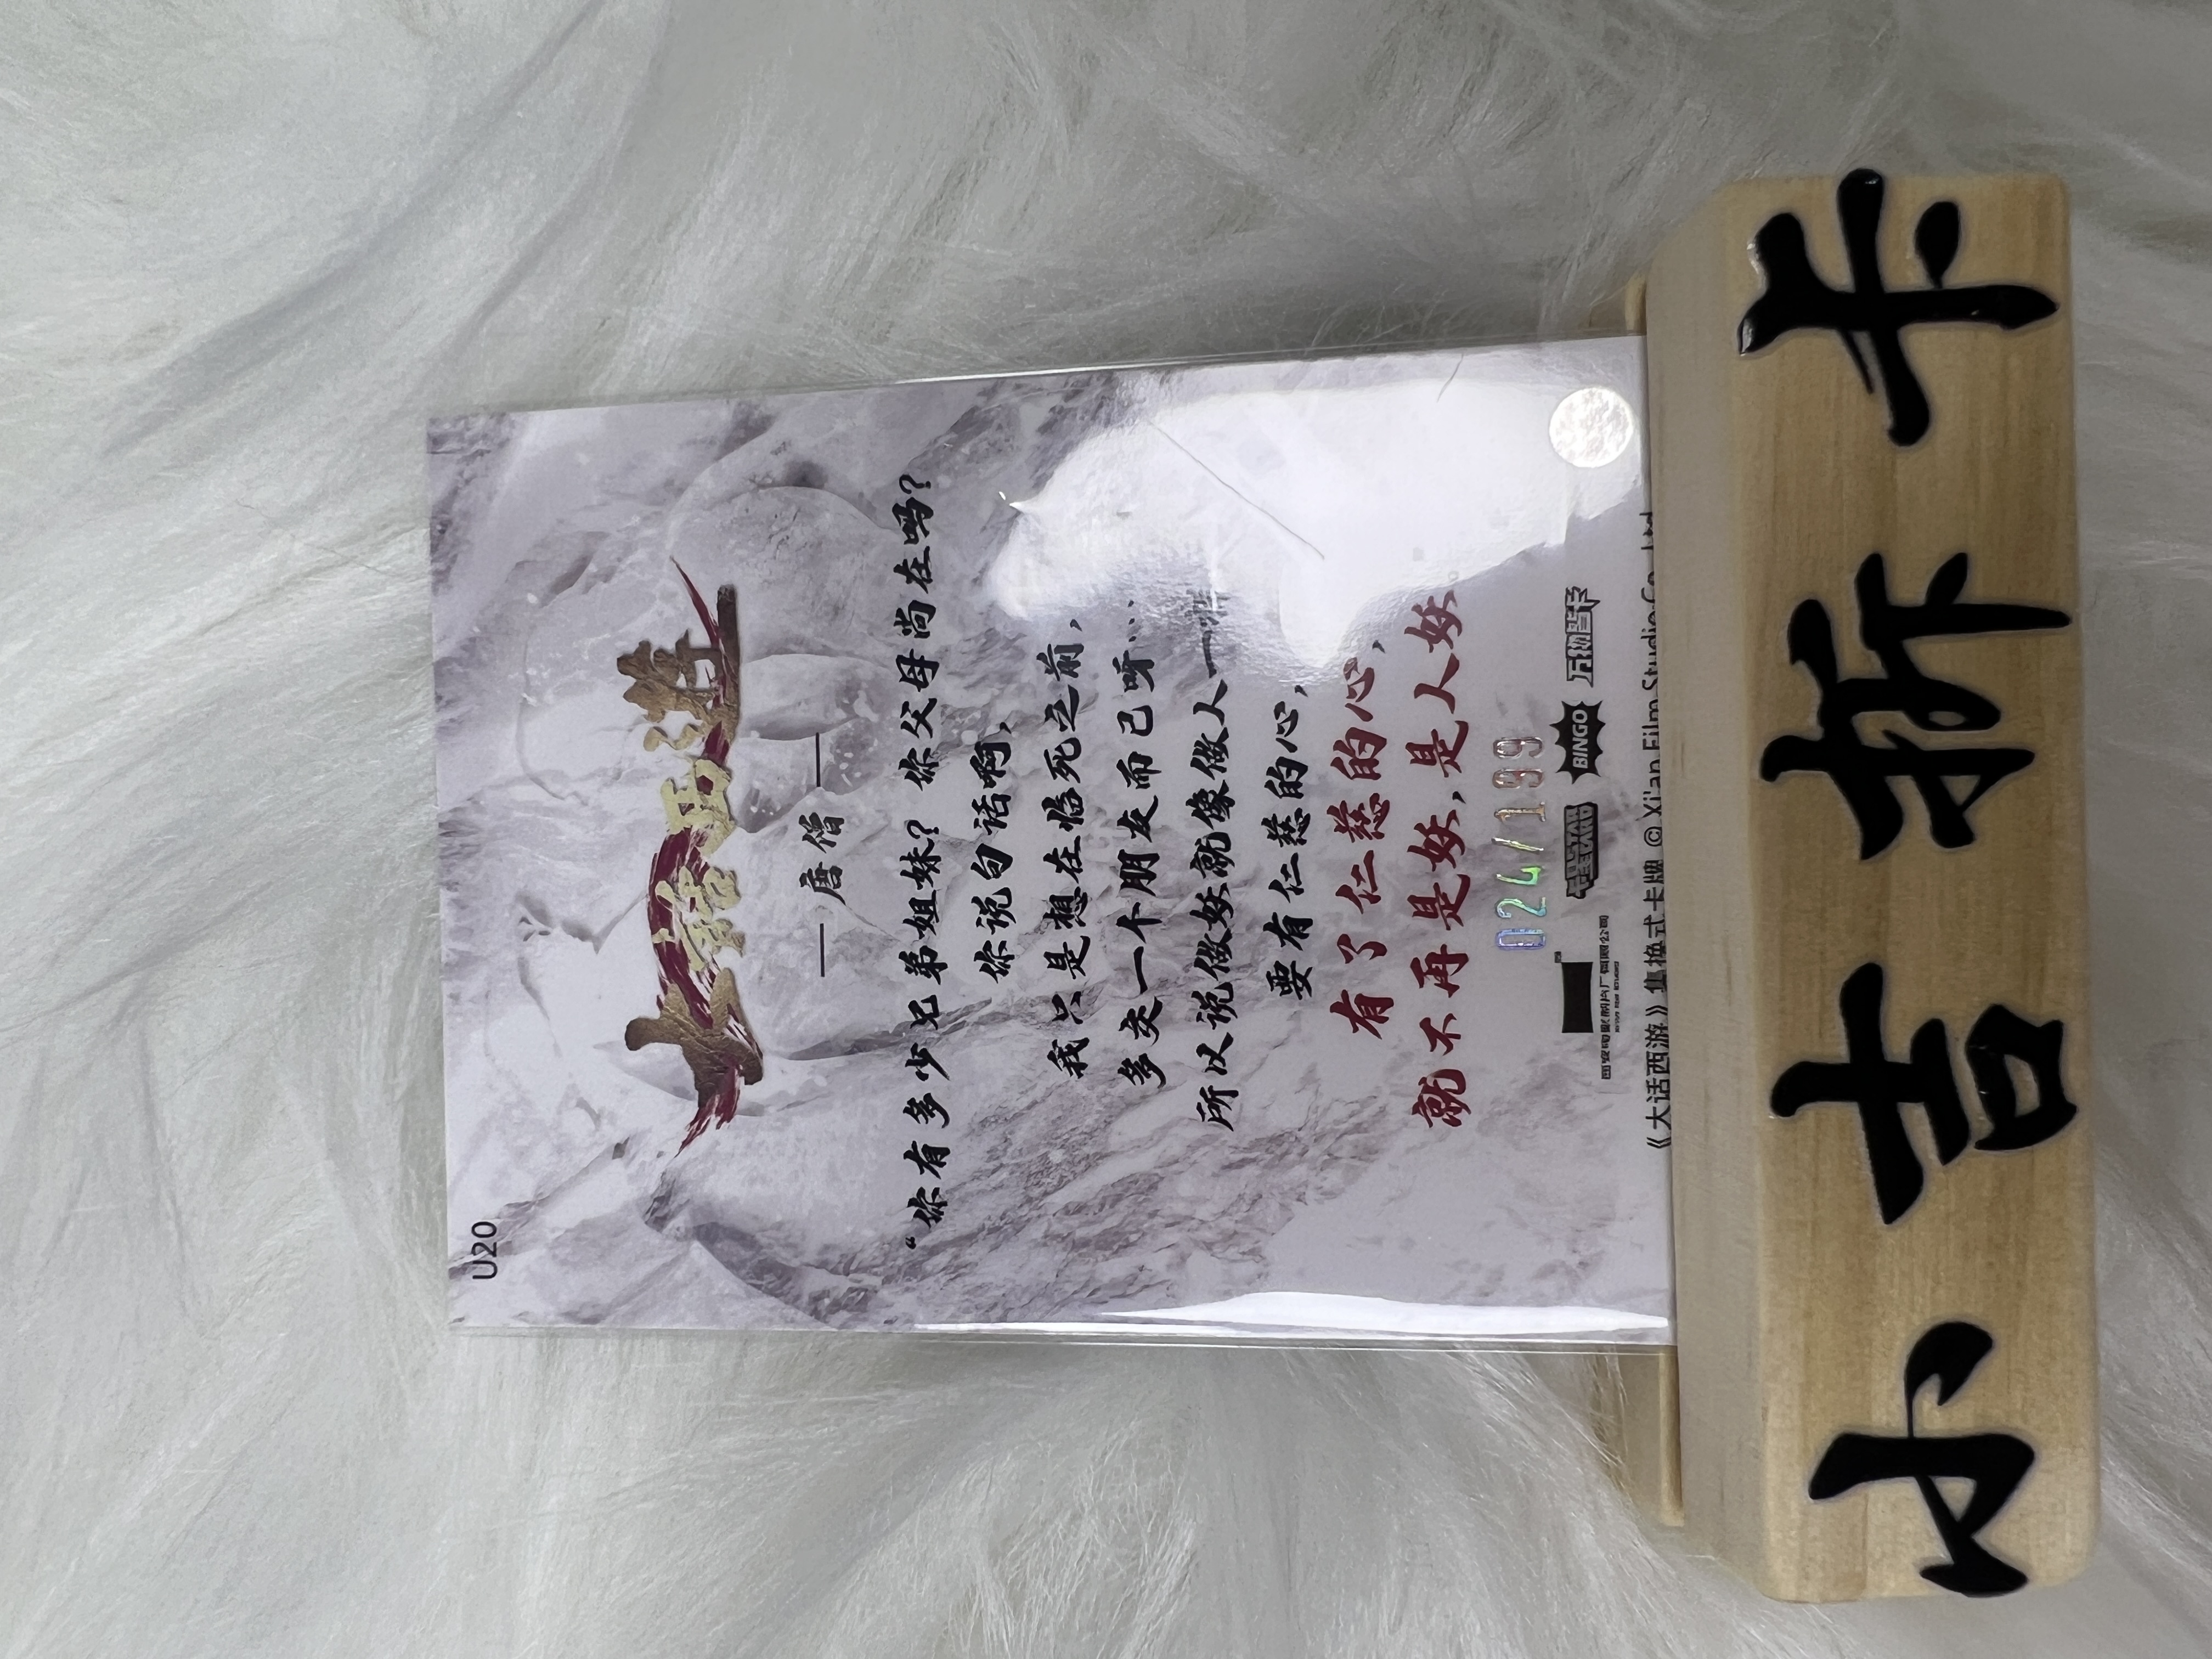 U20
大话西游
—— 唐僧 ——
“你有多少兄弟姐妹？你父母尚在吗？
你说句话啊，
我只是想在临死之前，
多交一个朋友而已呀…
所以说做妖就像做人一样
要有仁慈的心，
有了仁慈的心，
就不再是妖，是人妖
024/199
西安电影制片厂有限公司
BINGO
万物皆卡
《大话西游》集换式卡牌 © Xi'an Film Studio Co
小吉拆卡